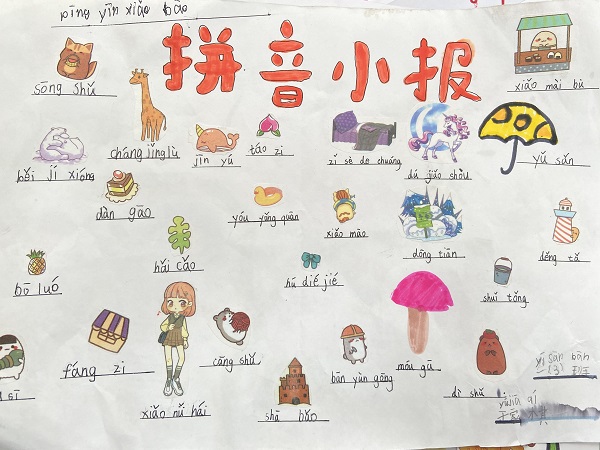 pīng yīn xiǎo bào
拼音小报
sōng shǔ
xiǎo mài bù
cháng jǐng lù
jīn yú
táo zi
zǐ sè de chuáng
dú jiǎo shòu
yǔ sǎn
běi jí xióng
dàn gāo
yóu yǒng quān
xiǎo māo
dōng tiān
dēng tǎ
bō luó
hǎi cǎo
hú dié jié
shuǐ tǒng
fáng zi
cāng shǔ
bān yùn gōng
móu gū
dì shǔ
xiǎo nǚ hái
shā bǎo
yī sān bān
一(3)班